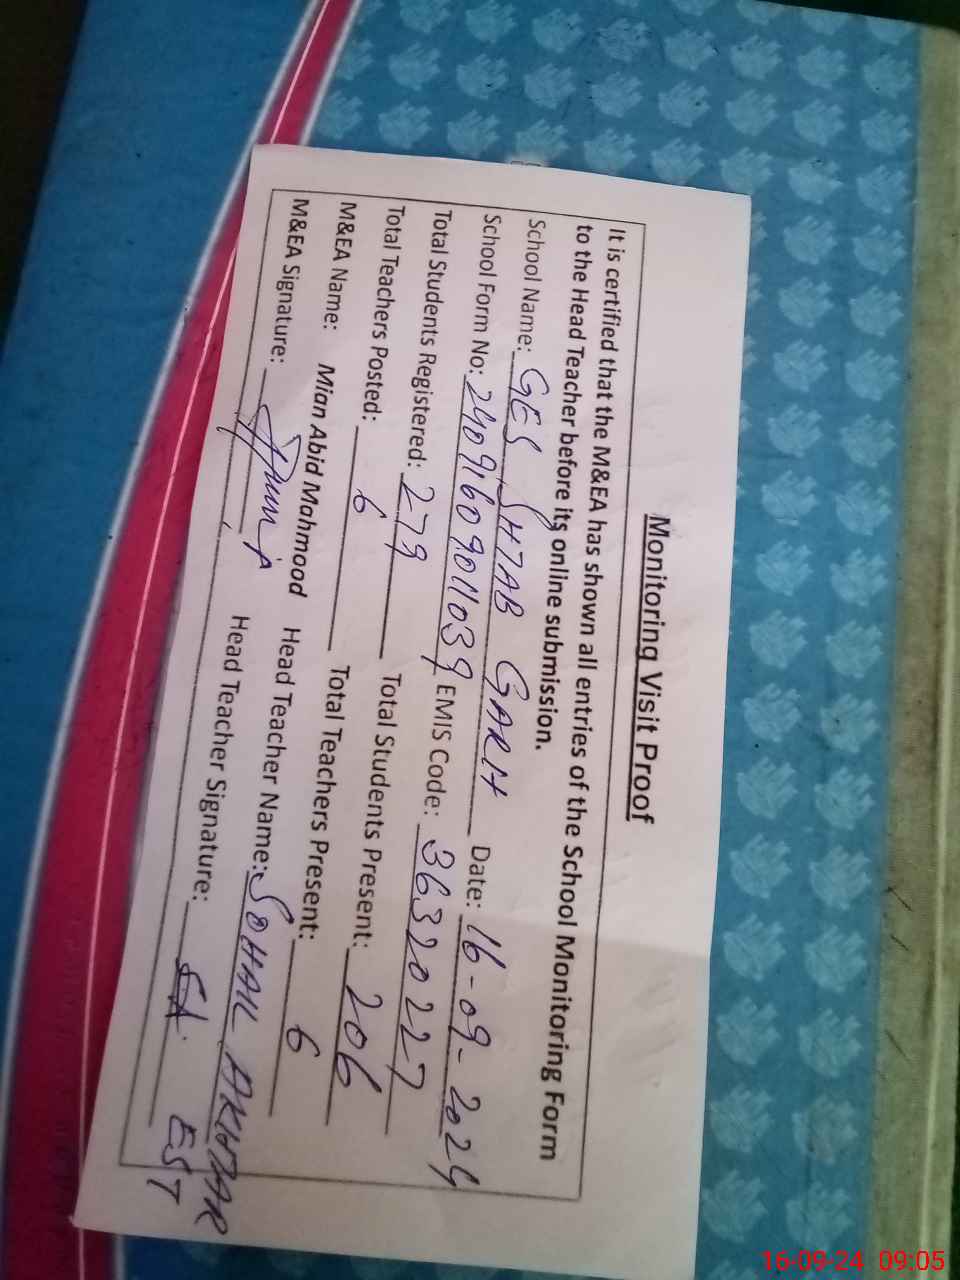 Monitoring Visit Proof
It is certified that the M&EA has shown all entries of the School Monitoring Form
to the Head Teacher before its online submission.
School Name: GES SHTAB GARH Date: 16-09-2024
School Form No: 2409160901039 EMIS Code: 36320227
Total Students Registered: 279 Total Students Present: 206
Total Teachers Posted: 6 Total Teachers Present: 6
M&EA Name: Mian Abid Mahmood Head Teacher Name: SOHAIL AKHTAR
M&EA Signature: Head Teacher Signature: SA. EST
16-09-24 09:05